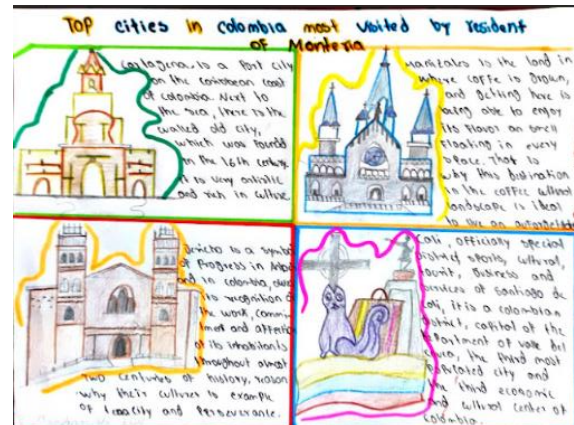 Top cities in colombia most visited by resident
of Monteria
Cartagena, is a Port city
on the caribbean coast
of colombia. Next to
the sea, there is the
walled old city,
which was found
in the 16th century
it is very artistic
and rich in culture
Manizales is the land in
where coffe is grown,
and getting here is
being able to enjoy
its flavor an smell
floating in every
place. That is
why this destination
in the coffee cultural
landscape is ideal
to live an
Jericho is a symbol
of Progress in
and in colombia,
its recognition
the work, commi
tment and affection
of its inhabitants
throughout almost
two centuries of history, reason
why their culture is example
of capacity and Perseverance.
Cali, officially special
district sports, cultural,
tourist, business and
services of santiago de
cali, it is a colombian
district, capital of the
department of valle del
cauca, the third most
populated city and
the third economic
and cultural center of
colombia.